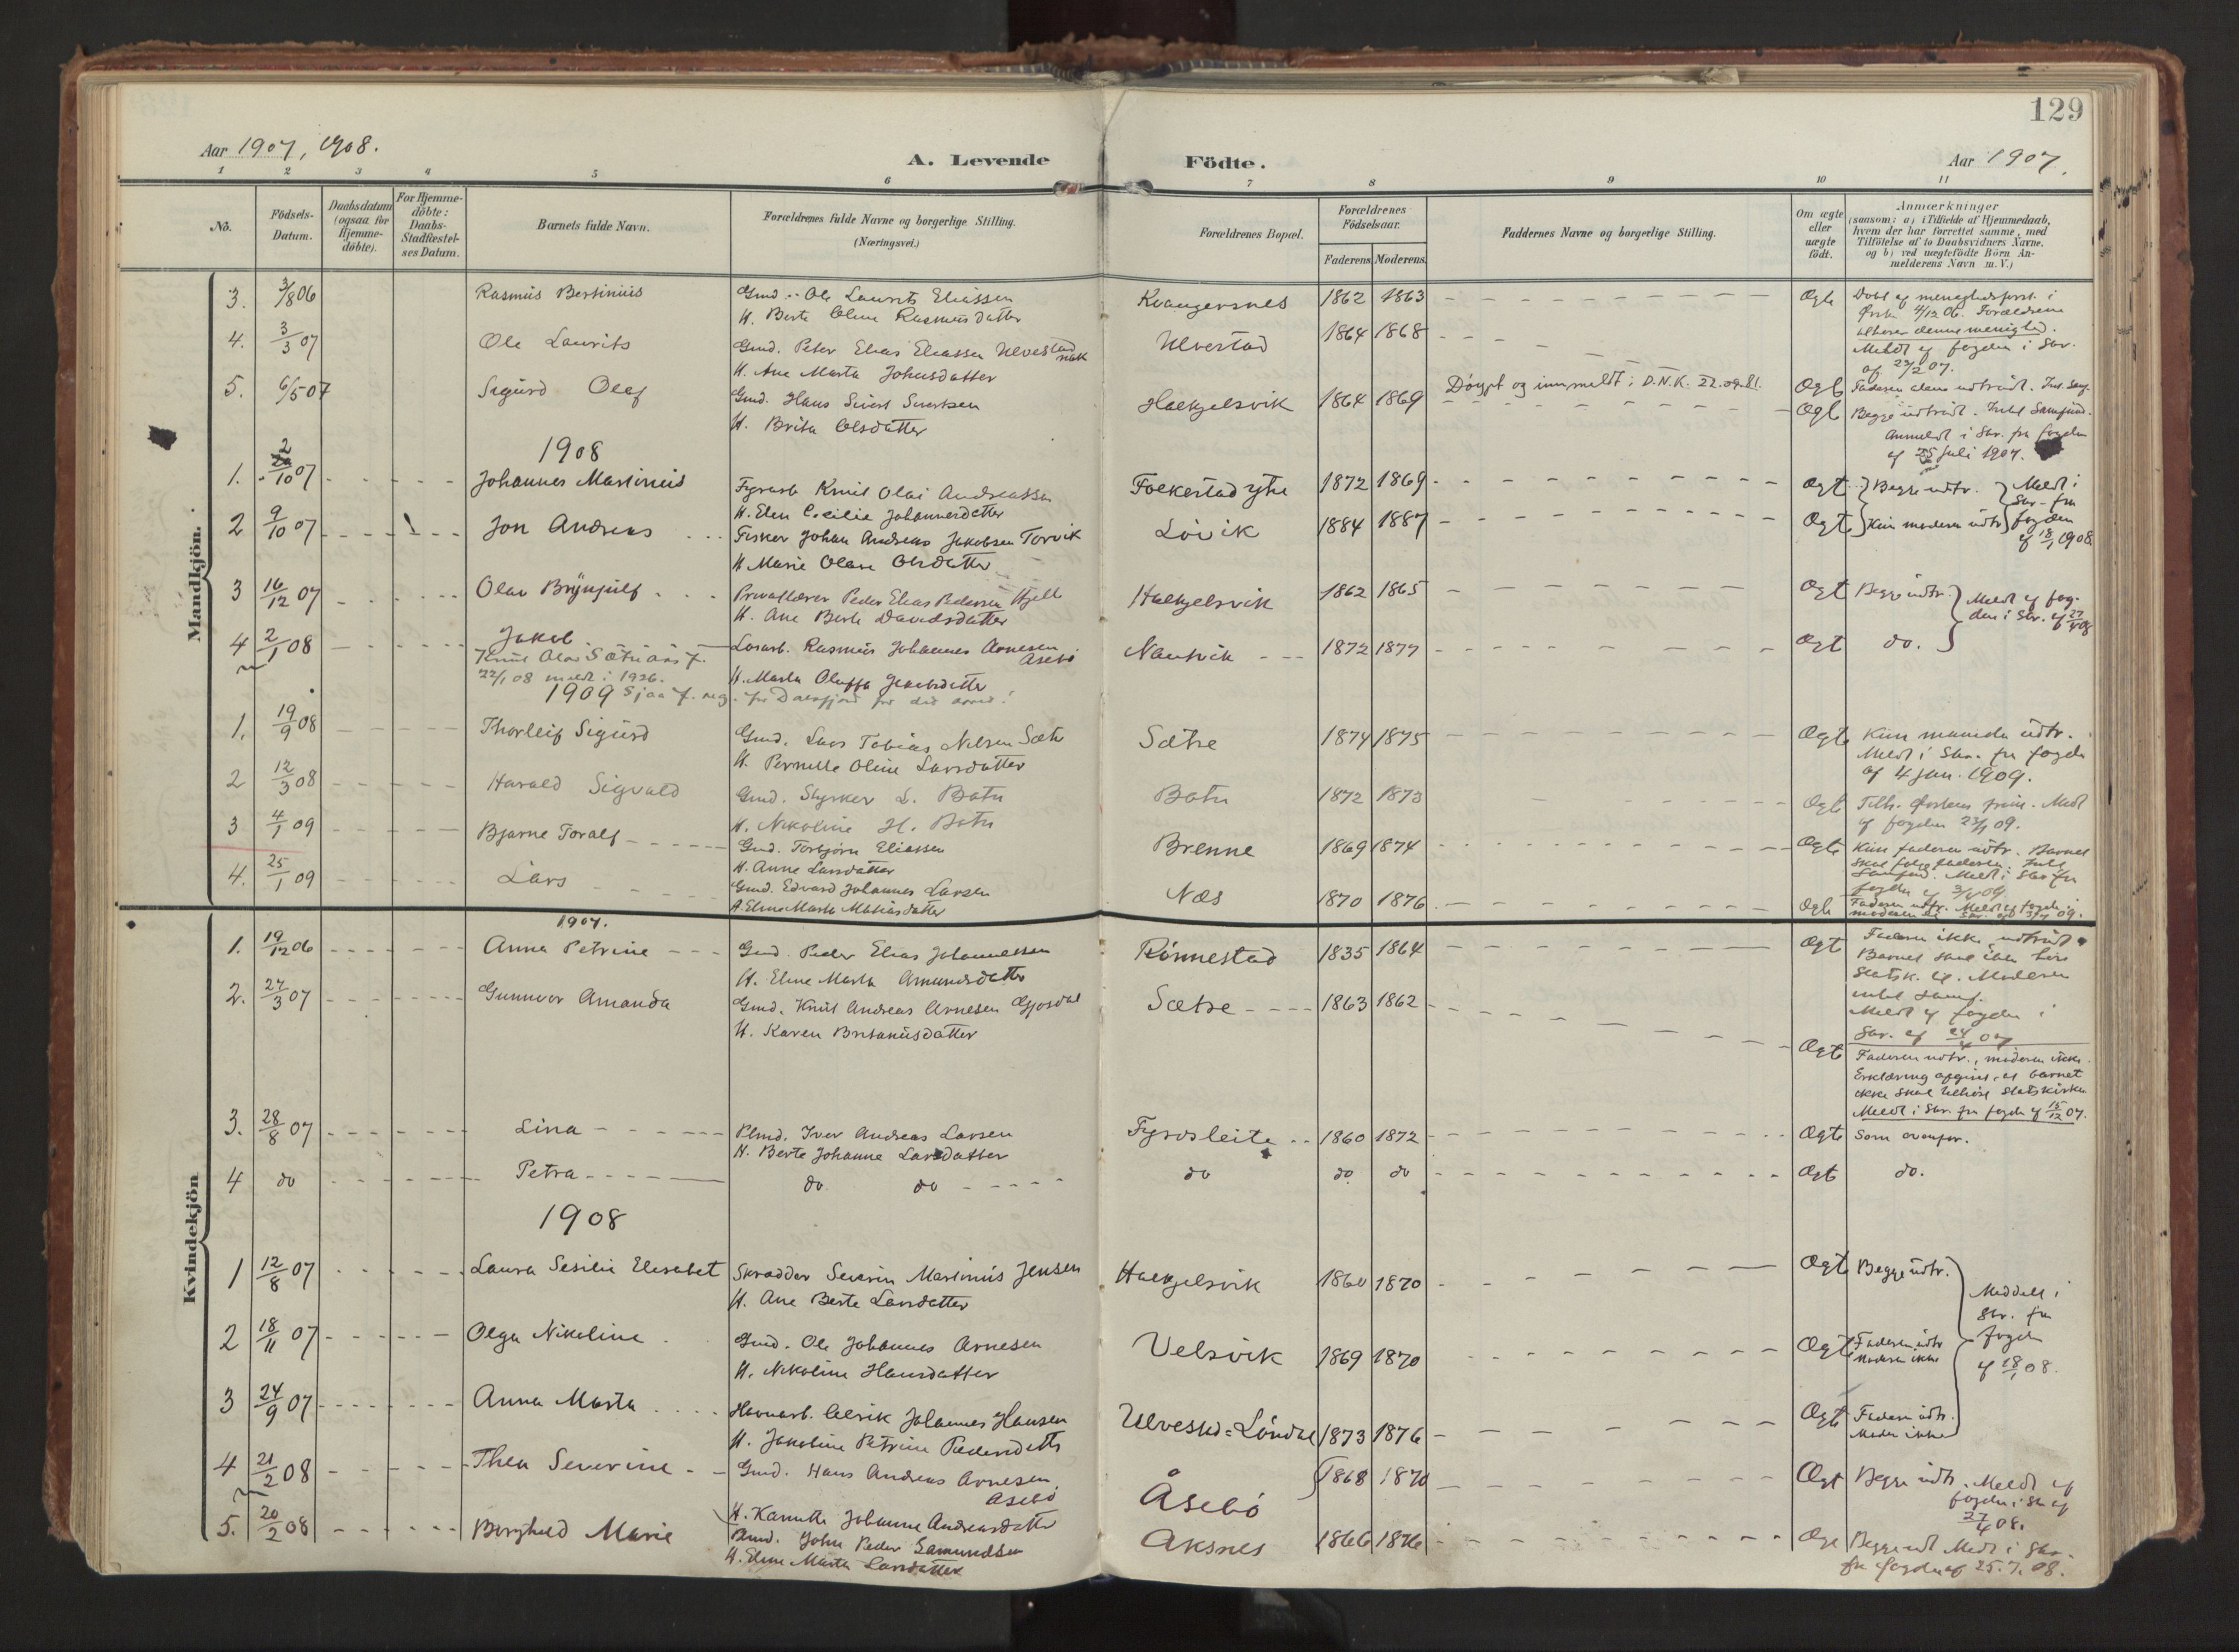 129
Aar 1907, 1908.
A. Levende
Födte.
Aar 1907.
1 2 3 4 5 6 7 8 9 10 11
No.
Födsels-
Datum.
Daabsdatum
(ogsaa for
Hjemme-
döbte).
For Hjemme-
döbte:
Daabs-
Stadfæstel-
ses Datum.
Barnets fulde Navn.
Forældrenes fulde Navne og borgerlige Stilling.
(Næringsvei.)
Forældrenes Bopæl.
Forældrenes
Födselsaar.
Faderens Moderens
Faddernes Navne og borgerlige Stilling.
Om ægte
eller
uægte
födt.
Anmærkninger
(saasom: a) i Tilfælde af Hjemmedaab,
hvem der har forrettet samme, med
Tilföielse af to Daabsvidners Navne,
og b) ved uægtefödte Börn An-
melderens Navn m. V.)
Mandkjön.
3. 3/8 06 Rasmus Bertinius Gmd. Ole Laurits Eliassen Kvangersnes 1862 1863 Ægte
H. Berte Oline Rasmusdatter
Döbt af menighedsforst. i
Ørsta 4/12 06. Forældrene
tilhører denne menighed.
4. 3/3 07 Ole Laurits Gmd. Peter Elias Eliassen Ulvestad Ulvestad 1864 1868
H. Ane Marta Johnsdatter
Meldt af fogden i Skr.
af 27/2 07.
Døypt og innmeldt i D.N.K. 22. Ægte Faderen alene udtraadt.
5. 6/5 07 Sigurd Olaf Gmd. Hans Sivert Sivertsen Hækjelsvik 1864 1869 Ægte
H. Brita Olsdatter
Begge udtraadt. Intet Samfund.
Anmeldt i Skr. fra fogden
af 25 Juli 1907.
1908
1. 2/10 07 Johannes Martinius Fyrarb. Knut Olai Andreassen Folkestad ytre 1872 1869 Ægt Begge udtr.
H. Elen Cecilie Johannesdatter
2 9/10 07 Jon Andreas Fisker Johan Andreas Jakobsen Torvik Løvik 1884 1887 Ægt Kun moderen udtr.
H. Marie Olave Olsdatter
Meldt i
Skr. fra
fogden
af 18/1 1908.
3 16/12 07 Olav Brynjulf Privatlærer Peder Elias Pedersen Hjelle Hækjelsvik 1862 1865 Ægt Begge udtr.
H. Ane Berte Davidsdatter
Meldt af fog-
den i Skr. af 27/4 08
4 2/1 08 Jakob Løsarb. Rasmus Johannes Arnesen Nautvik 1872 1877 Ægt do.
Asebö
H. Marta Oluffa Jakobsdatter
Knut Olav Sætre
22/1 08 meldt i 1926.
1909 Sjaa f. reg. fr Dalsfjord for det aaret!
1. 19/9 08 Thorleif Sigurd Gmd. Lars Tobias Nilsen Sætre Sætre 1874 1875 Ægte Kun manden udtr.
H. Pernille Oline Larsdatter
Meldt i Skr. fra fogden
af 4 jan. 1909.
2 12/3 08 Harald Sigvald Gmd. Styrker L. Botn Botn 1872 1873 Ægte
H. Nikoline H. Botn
Meldt
af fogden 23/1 09.
3 4/1 09 Bjarne Toralf Gmd. Torbjørn Eliassen Brenne 1869 1874 Ægte Kun faderen udtr. Barnet
H. Anne Larsdatter
skal følge faderen. Intet
Samfund. Meldt i Skr fra
fogden af 3/4 09
4. 25/1 09 Lars Gmd. Edvard Johannes Larsen Næs 1870 1876 Ægte
H. Eline Marta Mathiasdatter
Kvindekjön
1907.
1. 19/12 06 Anna Petrine Gmd. Peder Elias Johannessen Rönnestad 1835 1864 Ægt
H. Eline Marta Amundsdatter
Faderen ikke udtraadt
Barnet skal ikke höre
Statsk. til. Moderen
intet samf.
Meldt af fogden i
Skr. af 24/4 07
2. 27/3 07 Gunnvor Amanda Gmd. Knut Andreas Arnesen Gjosdal Sætre 1863 1862 Ægte
H. Karen Britaniusdatter
Faderen udtr., moderen ikke.
Erklæring afgivet, at barnet
ikke skal tilhöre Statskirken
Meldt i Skr. fra fogden af 15/12 07.
3. 28/8 07 Lina Plmd. Iver Andreas Larsen Fyrvsleite 1860 1872 Ægte Som ovenfor.
H. Berte Johanne Larsdatter
4 do Petra do do do do do Ægt do.
1908
1 12/8 07 Laura Sesilie Elisabet Skrædder Severin Martinus Jensen Hækjelsvik 1860 1870 Ægt Begge udtr.
H. Ane Berte Larsdatter
2 18/11 07 Olga Nikoline Gmd. Ole Johannes Arnesen Velsvik 1869 1870 Ægt Faderen udtr
Moderen ikke
H. Nikoline Hansdatter
Meddelt i
Skr. fra
fogden
af 18/1 08.
3 24/9 07 Anna Marta Havnarb. Ulrik Johannes Hansen Ulvestad=Löndal 1873 1876 Ægt Faderen udtr.
Moder ikke
H. Jakoline Petrine Pedersdatter
4 21/2 08 Thea Severine Gmd. Hans Andreas Arnesen Åsebö 1868 1870 Ægt Begge udtr. Meldt af
Asebö
fogden i Skr af
27/4 08.
H. Kanutte Johanne Andreasdatter
5. 20/2 08 Borghild Marie Plmd. John Peder Samundsen Aksnes 1866 1876 Ægt Begge udt Meldt i Skr.
H. Eline Marta Larsdatter
fra fogden af 25.7.08.